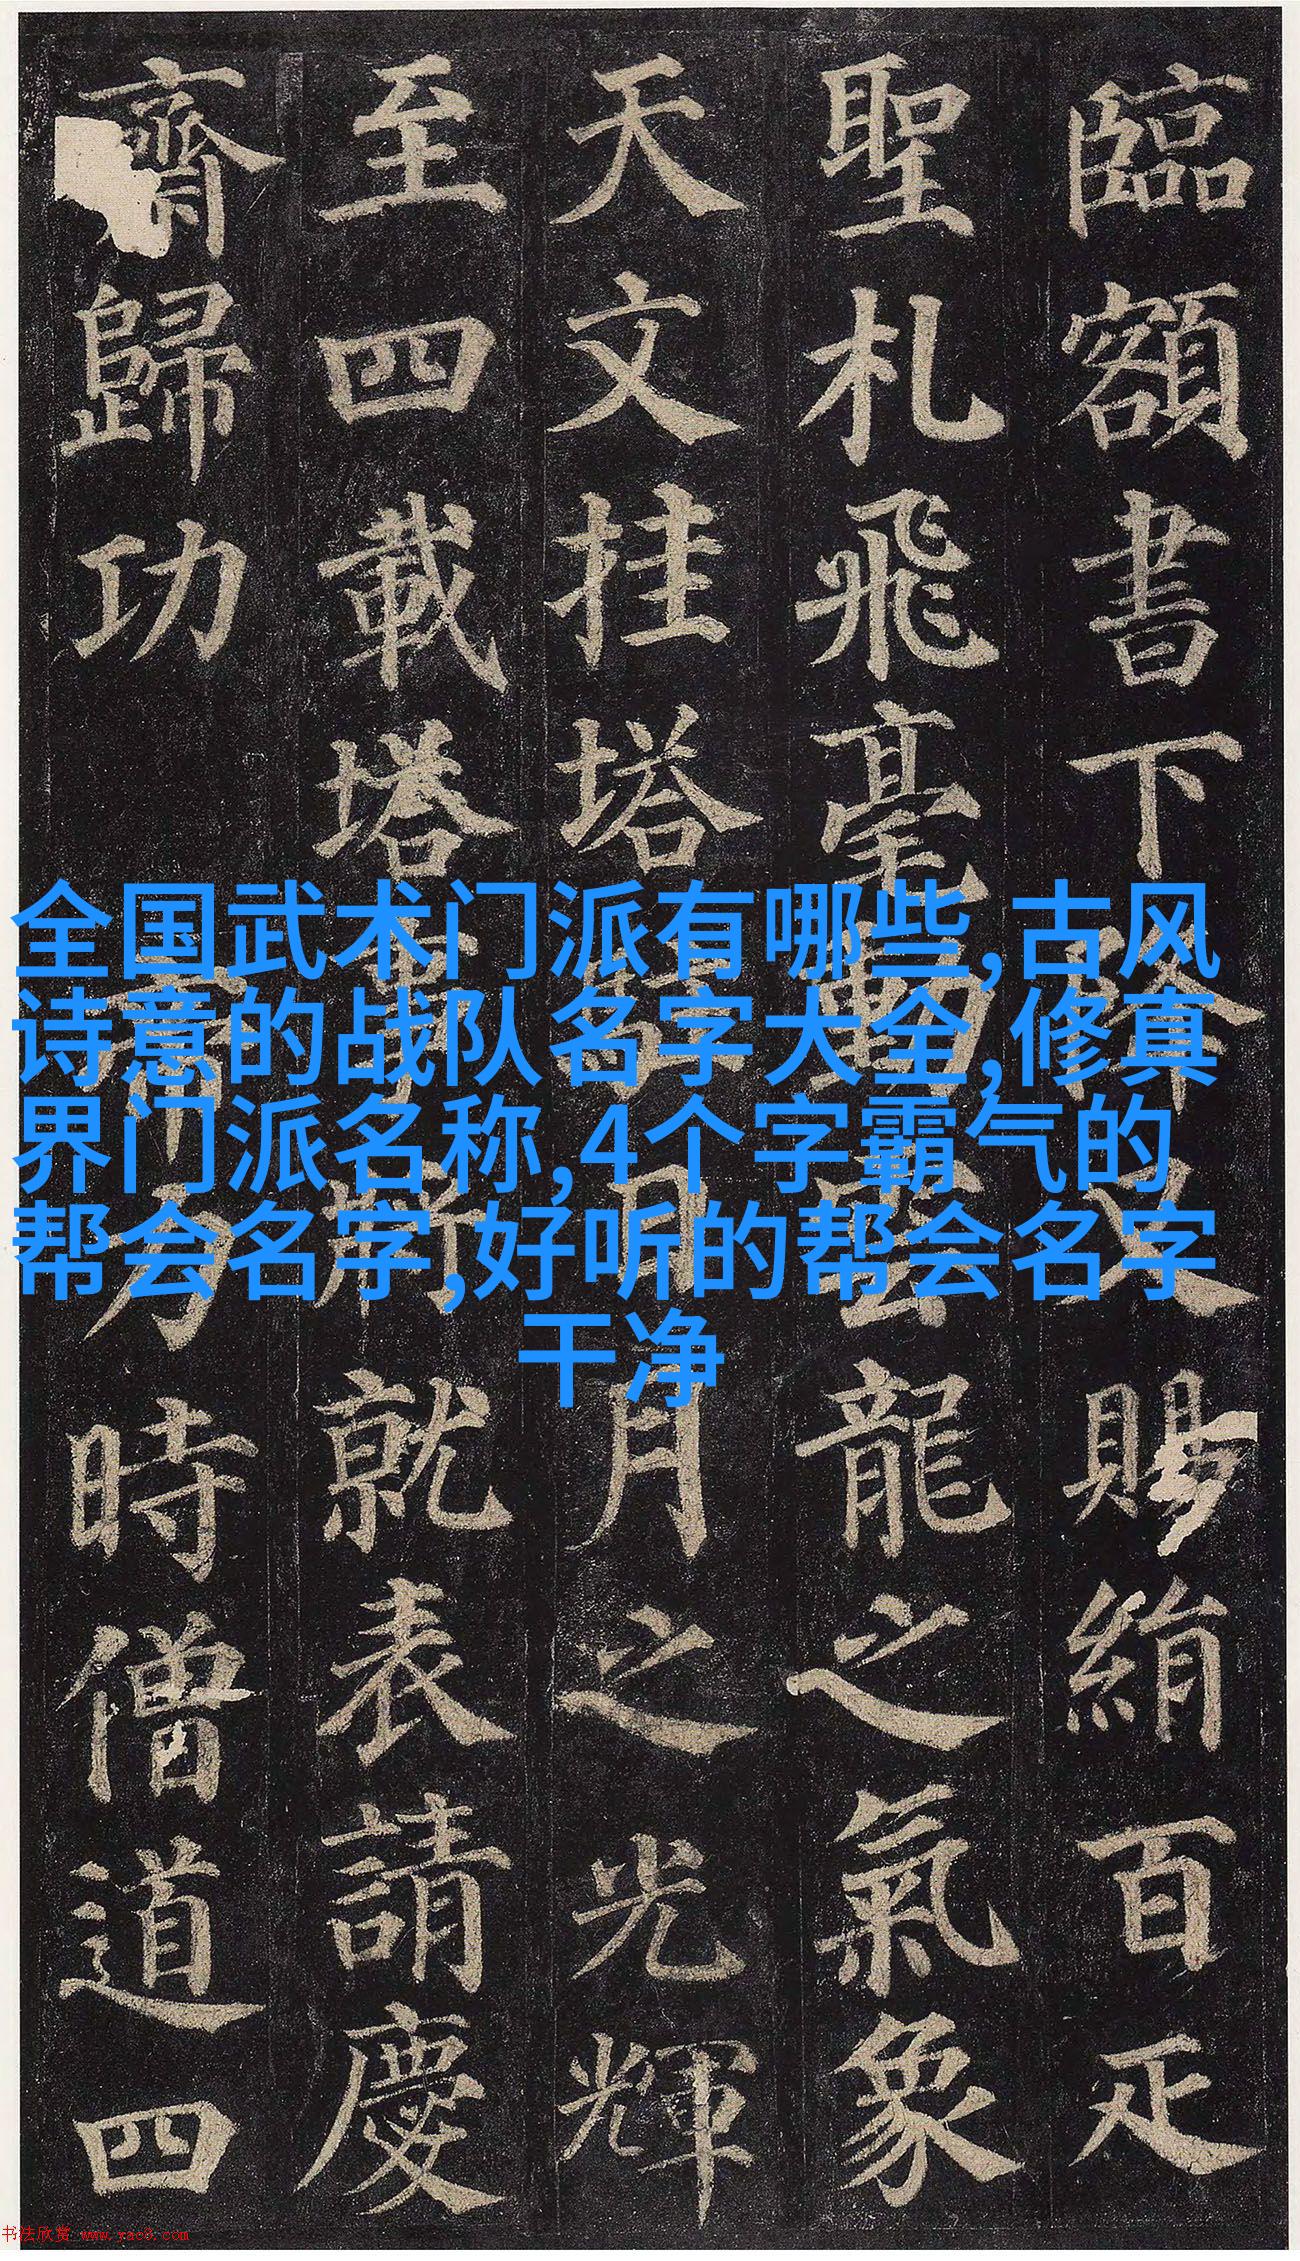 臨額書下降又賜絹百疋
聖札飛毫動雲龍之氣象
天文挂塔駐日月之光輝
至四載塔事將就表請慶
齋歸功 帝力時僧道四
全国武术门派有哪些,古风
诗意的战队名字大全,修真
界门派名称,4个字霸气的
帮会名字,好听的帮会名字
干净
书法欣赏 www.yac8.com